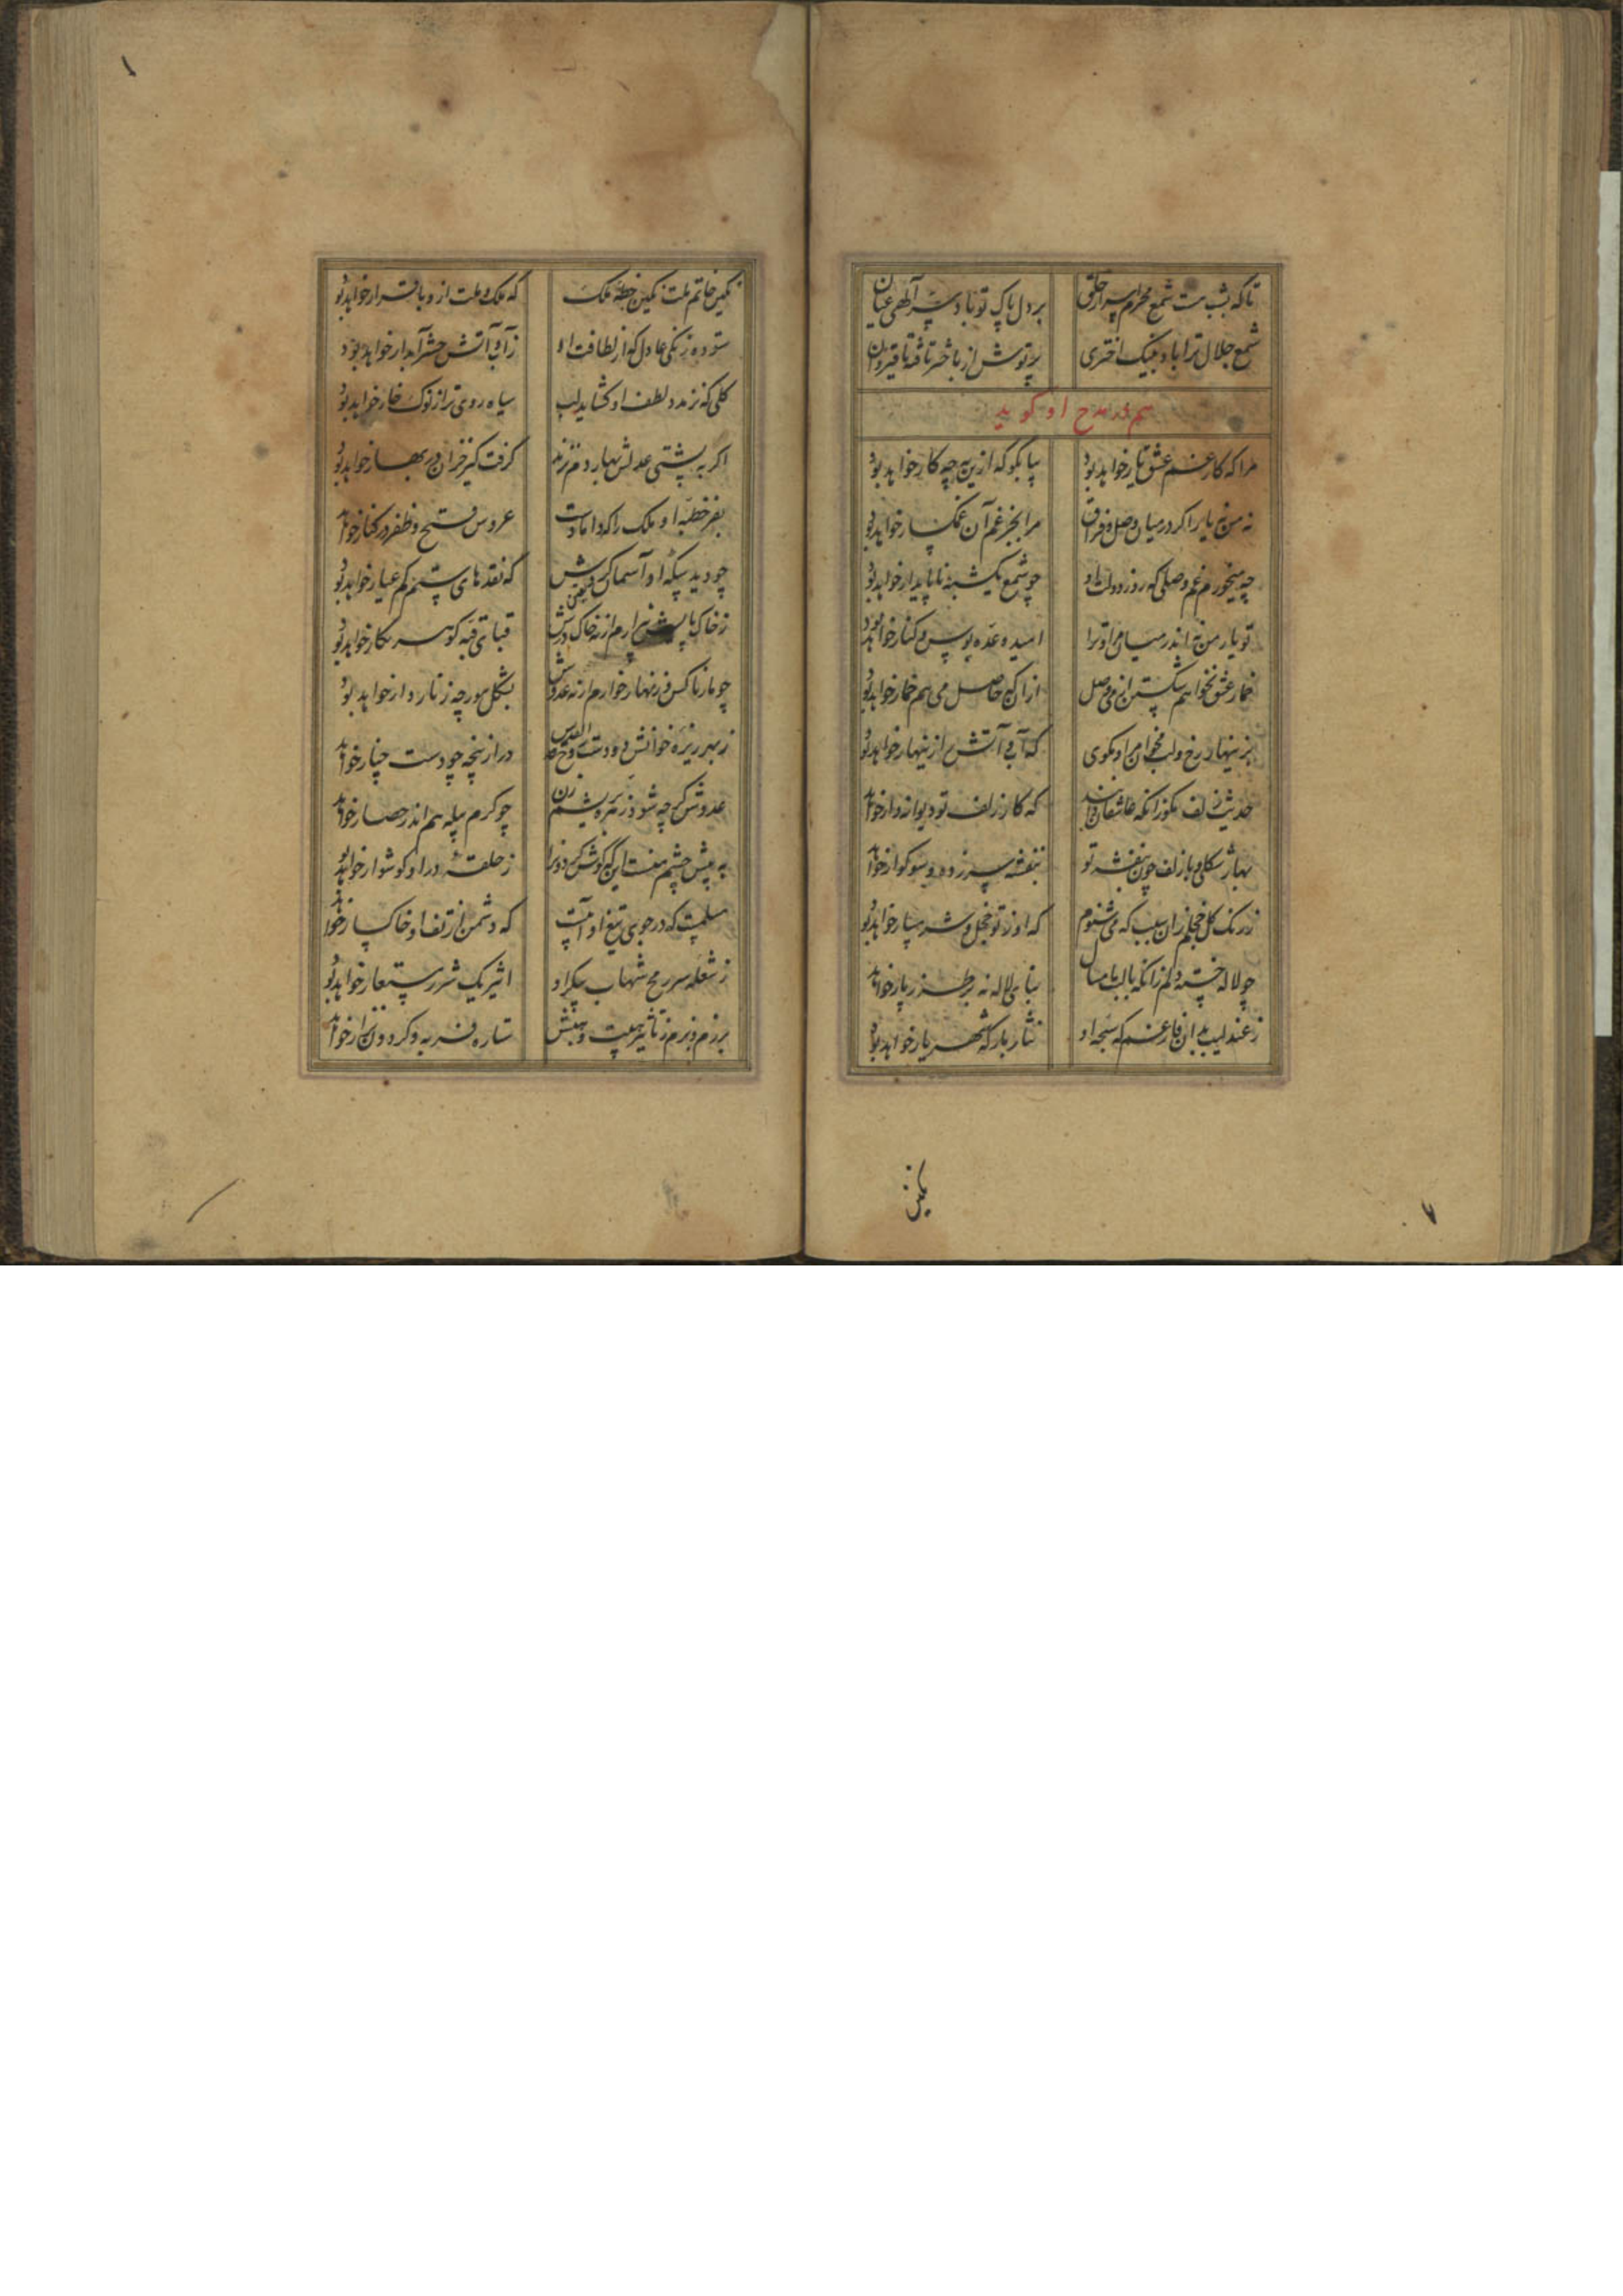 تا که بشب هست شمع محرم اسرار خلق بر دل پاک تو باد سر الهی عیان
شمع جلال ترا باد بنیک اختری پرتوش از باختر تافته تا قیروان
هم در مدح او گوید
مرا که کار غم عشق یار خواهد بود بیا بگو که ازین به چه کار خواهد بود
نه من نه یار اکر در میان وصل و فراق مرا بجز غم آن غمکسار خواهد بود
چه میخورم غم وصلی که روز دولت او چو شمع یکشبه ناپایدار خواهد بود
تو یار من نه اندر میان مرا و ترا امید وعده بوس و کنار خواهد بود
خمار عشق نخواهم شکستن از می وصل از آن که حاصل می هم خمار خواهد بود
بزینهار رخ و لب مخوان مرا و مکوی که آب و آتش از زینهار خواهد بود
حدیث زلف مکو زانکه عاشقان دانند که کار زلف تو دیوانه وار خواهد
بهار شکلی و با زلف چون بنفشه تو بنفشه سر زده و سوکوار خواهد
ز رنک کل خجلم زان سبب که می شنوم که او ز تو خجل و شرمسار خواهد بود
چو لاله خسته دلم زانکه با لب امسال بنای لاله نه بر طرز پار خواهد
ز عندلیب بدان فارغم که سجع او نثار بارکه شهریار خواهد بود
نکین
نکین خاتم ملت نکین خطه ملک که ملک و ملت ازو با قرار خواهد بود
ستوده زنکی عادل که از لطافت او ز آب و آتش حشر آبدار خواهد بود
کلی که نزد لطف او کشاید لب سیاه روی تر از نوک خار خواهد بود
اکر به پشتی عدلش بهار دم نزند کرفت کیر خزان در بهار خواهد بود
بفر خطبه او ملک را که داماد است عروس فتح و ظفر در کنار خواهد
چو دید سکه او آسمان که نقدهای ستم کم عیار خواهد بود
ز خاک درش قبای قبه کوهر نکار خواهد بود
چو مار ناکس و زنهار خوارم ار نه عدوش بشکل مورچه زنار دار خواهد بود
دراز پنجه چو دست چنار خواهد
عدوش کرچه شود زره بریشم زن چو کرم پیله هم اندر حصار خواهد
به پیش چشم منست این که کوش کردون را ز حلقه در او کوشوار خواهد بود
مسلمست که در جوی تیغ او آبست که دشمن از تف او خاکسار خواهد
ز شعله سر رمح شهاب پیکر او اثیر یک شرر مستعار خواهد بود
برزم و بزم ز تاثیر هیبت و هیبتش ستاره فربه و کردون نزار خواهد